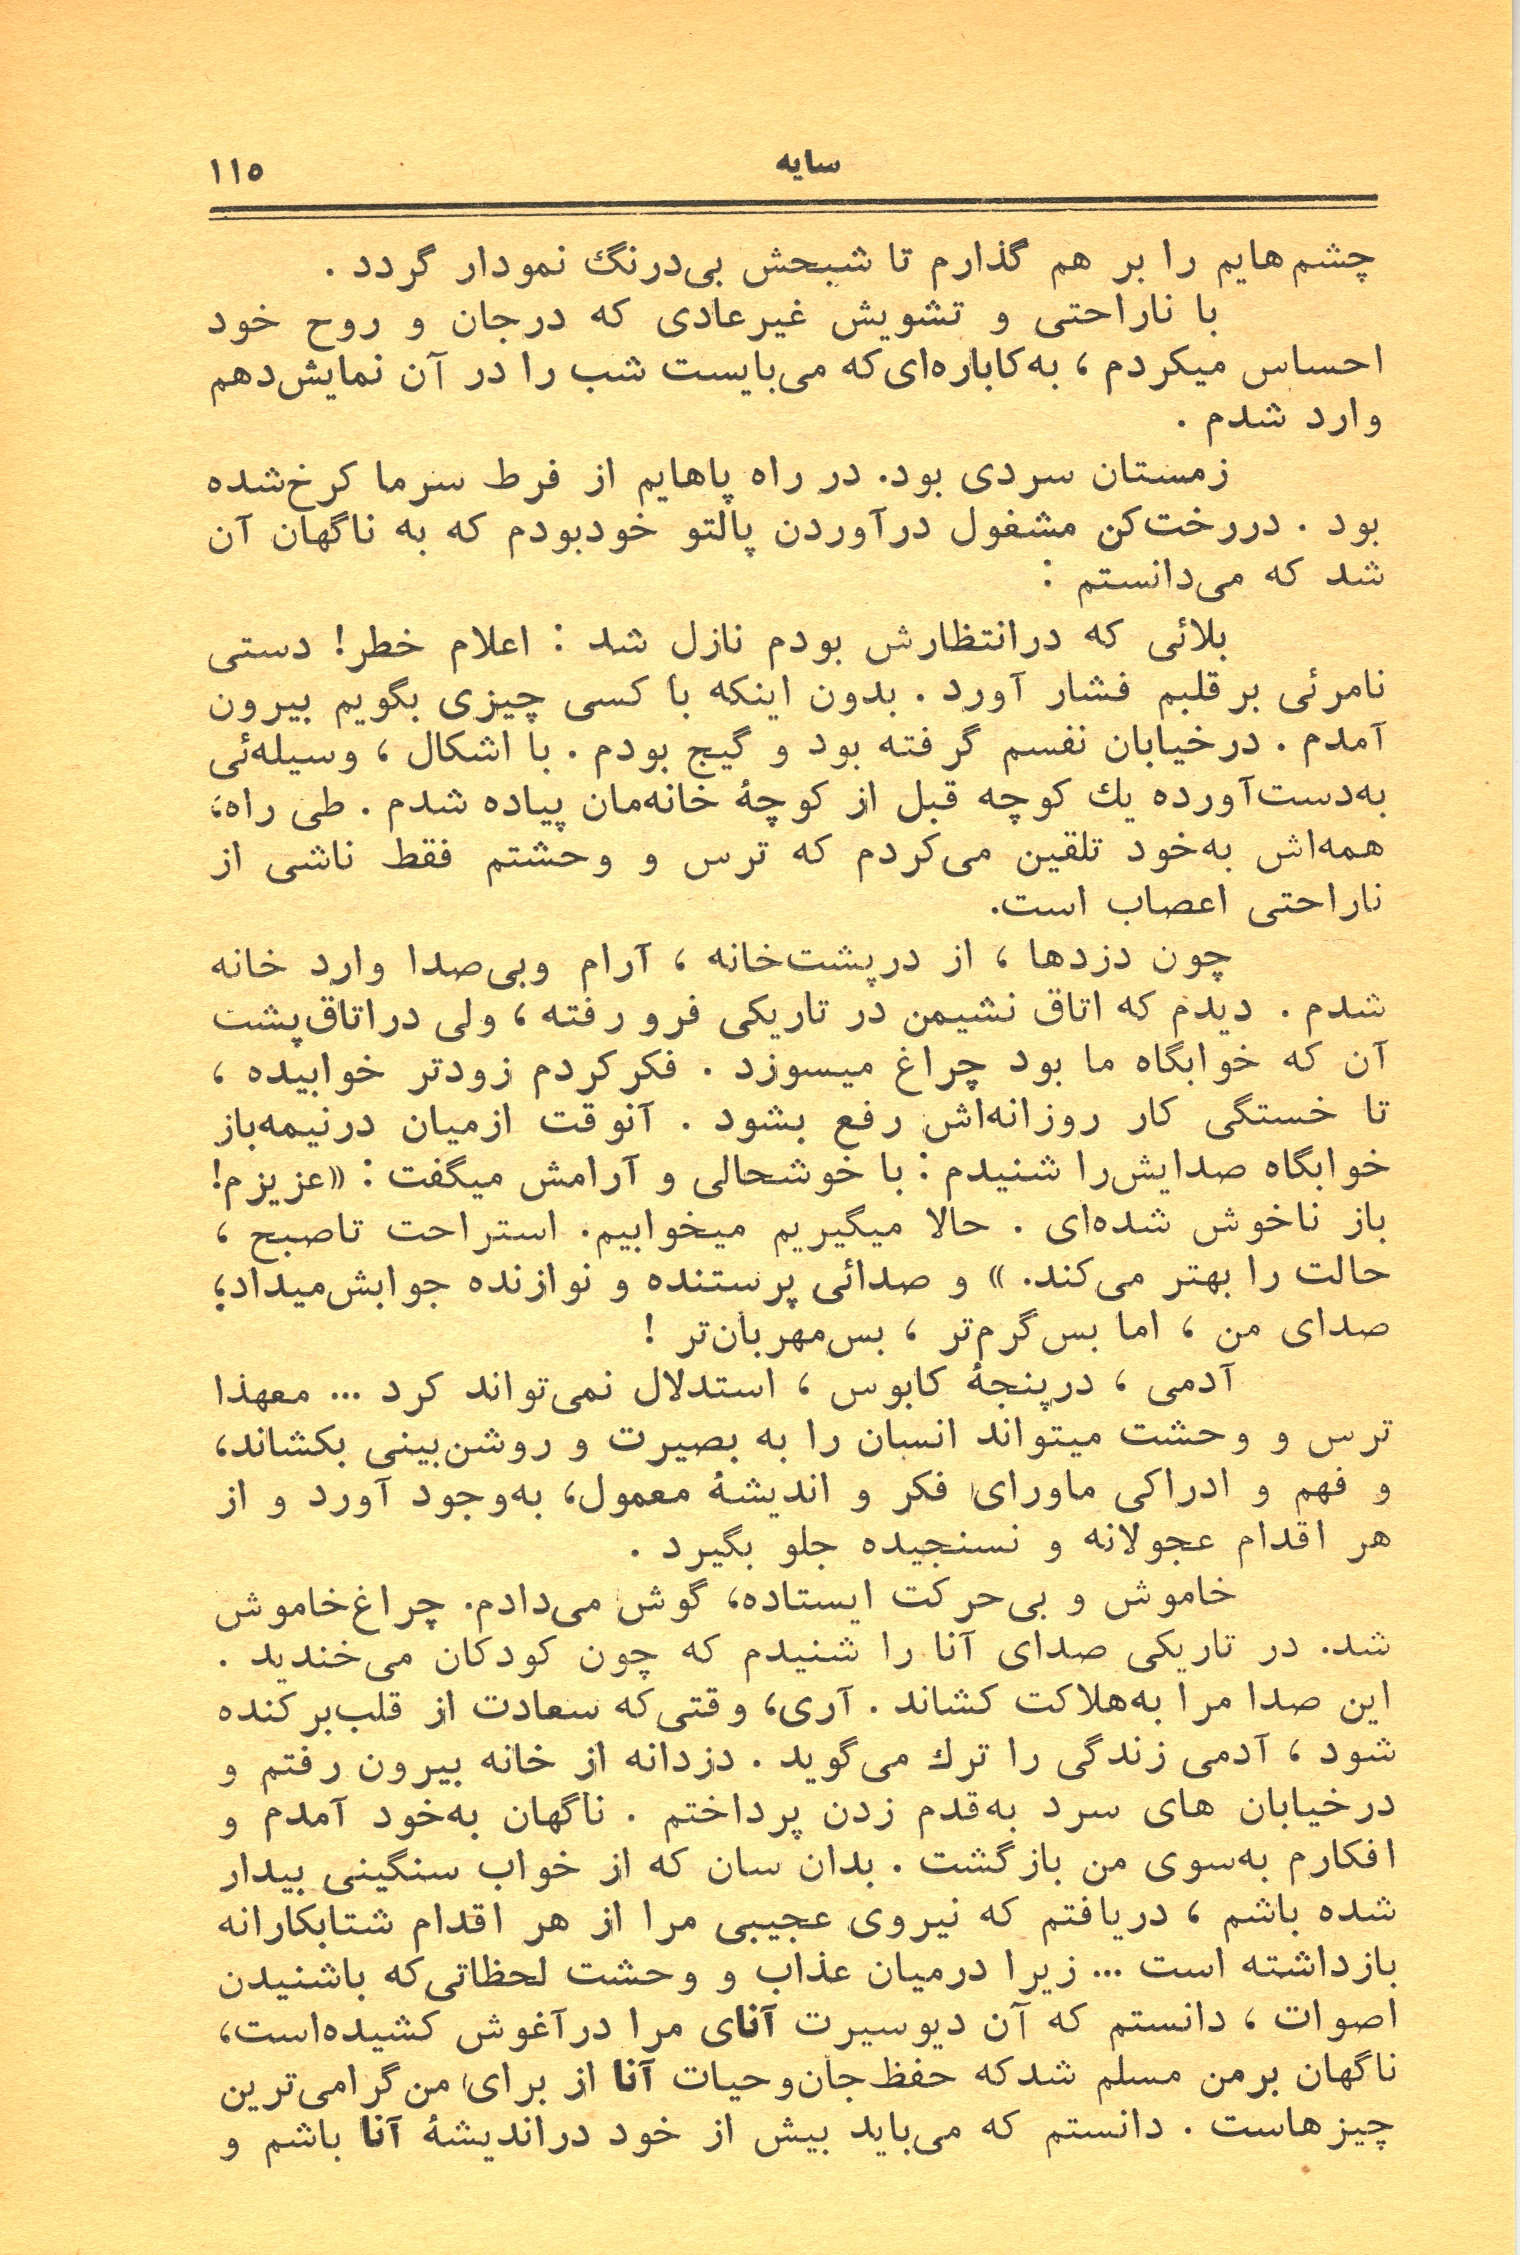 سایه
۱۱۵
چشم‌هایم را بر هم گذارم تا شبحش بی‌درنگ نمودار گردد .
با ناراحتی و تشویش غیرعادی که درجان و روح خود
احساس میکردم ، به‌کاباره‌ای‌که می‌بایست شب را در آن نمایش‌دهم
وارد شدم .
زمستان سردی بود. در راه پاهایم از فرط سرما کرخ‌شده
بود . دررخت‌کن مشغول درآوردن پالتو خودبودم که به ناگهان آن
شد که می‌دانستم :
بلائی که درانتظارش بودم نازل شد : اعلام خطر! دستی
نامرئی برقلبم فشار آورد . بدون اینکه با کسی چیزی بگویم بیرون
آمدم . درخیابان نفسم گرفته بود و گیج بودم . با اشکال ، وسیله‌ئی
به‌دست‌آورده یك کوچه قبل از کوچهٔ خانه‌مان پیاده شدم . طی راه،
همه‌اش به‌خود تلقین می‌کردم که ترس و وحشتم فقط ناشی از
ناراحتی اعصاب است.
چون دزدها ، از درپشت‌خانه ، آرام وبی‌صدا وارد خانه
شدم . دیدم که اتاق نشیمن در تاریکی فرو رفته ، ولی دراتاق‌پشت
آن که خوابگاه ما بود چراغ میسوزد . فکرکردم زودتر خوابیده ،
تا خستگی کار روزانه‌اش رفع بشود . آنوقت ازمیان درنیمه‌باز
خوابگاه صدایش‌را شنیدم : با خوشحالی و آرامش میگفت : «عزیزم!
باز ناخوش شده‌ای . حالا میگیریم میخوابیم. استراحت تاصبح ،
حالت را بهتر می‌کند. » و صدائی پرستنده و نوازنده جوابش‌میداد؛
صدای من ، اما بس‌گرم‌تر ، بس‌مهربان‌تر !
آدمی ، درپنجهٔ کابوس ، استدلال نمی‌تواند کرد ... معهذا
ترس و وحشت میتواند انسان را به بصیرت و روشن‌بینی بکشاند،
و فهم و ادراکی ماورای فکر و اندیشهٔ معمول، به‌وجود آورد و از
هر اقدام عجولانه و نسنجیده جلو بگیرد .
خاموش و بی‌حرکت ایستاده، گوش می‌دادم. چراغ‌خاموش
شد. در تاریکی صدای آنا را شنیدم که چون کودکان می‌خندید .
این صدا مرا به‌هلاکت کشاند . آری، وقتی‌که سعادت از قلب‌برکنده
شود ، آدمی زندگی را ترك می‌گوید . دزدانه از خانه بیرون رفتم و
درخیابان های سرد به‌قدم زدن پرداختم . ناگهان به‌خود آمدم و
افکارم به‌سوی من بازگشت . بدان سان که از خواب سنگینی بیدار
شده باشم ، دریافتم که نیروی عجیبی مرا از هر اقدام شتابکارانه
بازداشته است ... زیرا درمیان عذاب و وحشت لحظاتی‌که باشنیدن
اصوات ، دانستم که آن دیوسیرت آنای مرا درآغوش کشیده‌است،
ناگهان برمن مسلم شدکه حفظ‌جان‌وحیات آنا از برای من‌گرامی‌ترین
چیزهاست . دانستم که می‌باید بیش از خود دراندیشهٔ آنا باشم و